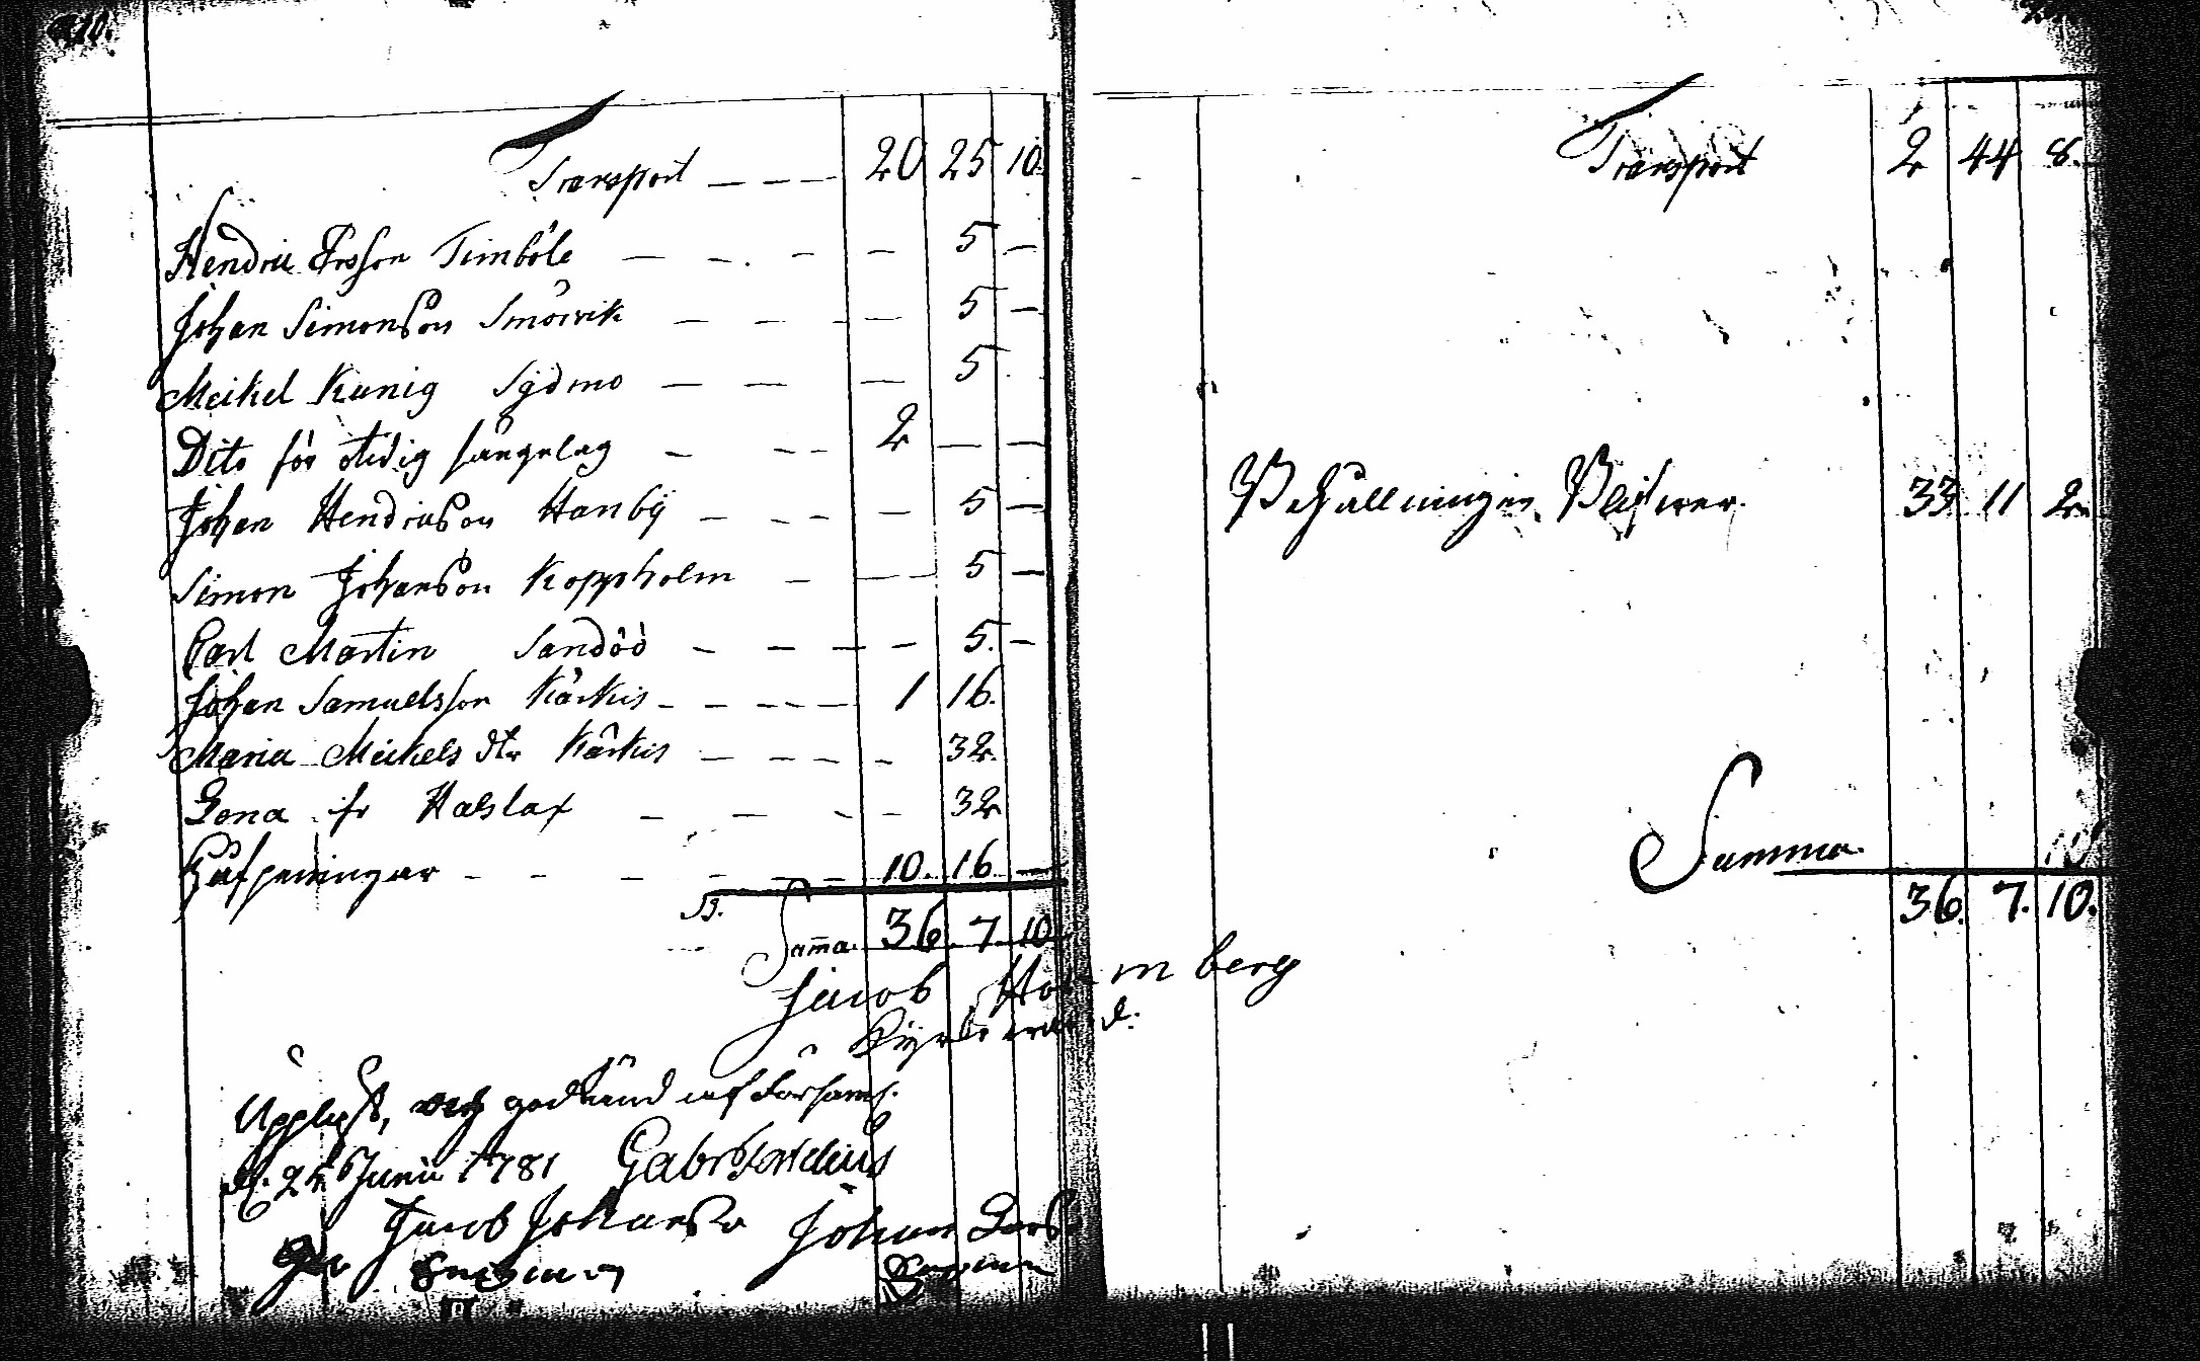 Transport — — — 20 25 10.
Hendric Ersson Timböle — — — — 5 —
Johan Simonson Smörvik — — — — 5 —
Meikel Kunig Sydmo — — — 5
Dito för otidig sängelag — — — 2 — —
Johan Hendricson Hanby — — — — 5 —
Simon Johanson Koppholm — — — 5 —
Carl Martin Sandöö — — — — 5. —
Johan Samuelsson Kärkis — — — — 1 16.
Maria Meikels dtr Kärkis — — — — 32.
Lena Halslax — — — — 32
Håfpenningar — — — — 10. 16 —
Sama. 36. 7. 10
Jacob Holmberg
Kyrkovärd.
Upplyst, och godkänd af Församl.
d. 24 Junii 1781 Gabr
Jacob Johansson Johan Lars
Transport 2 44 8.
Behållningen blifver. 33 11 2.
Summa.
36. 7. 10.